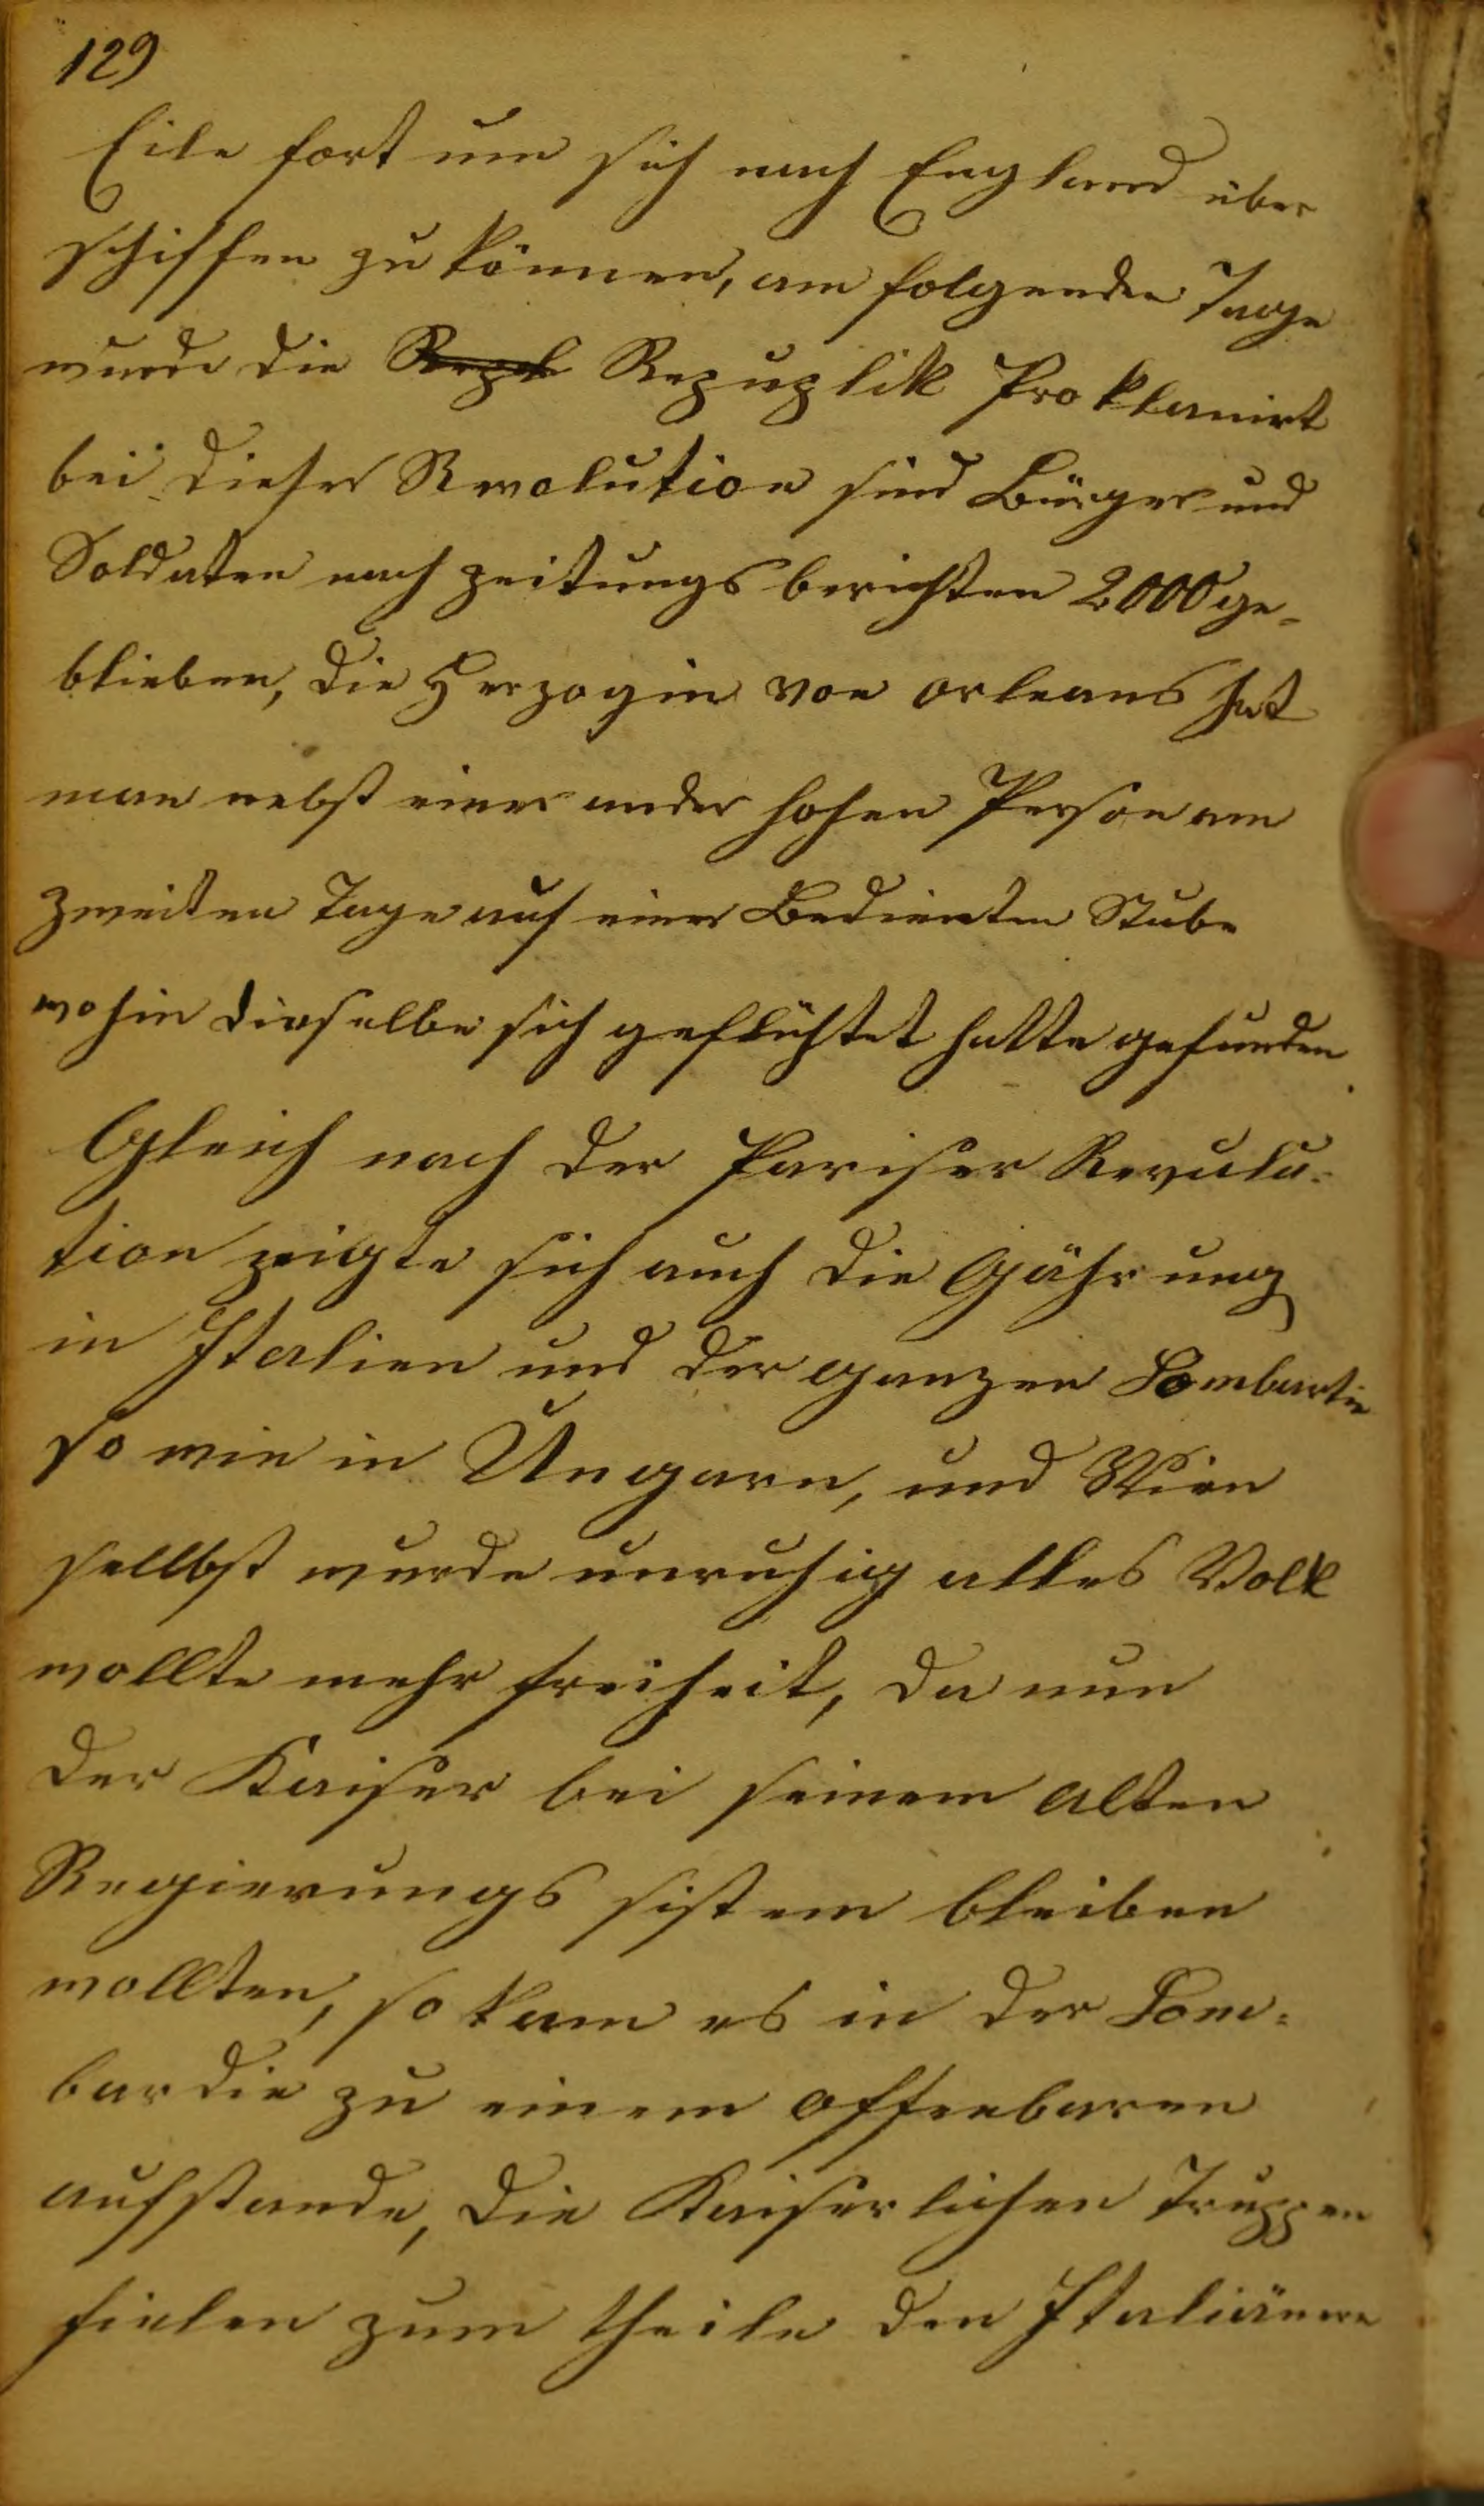 129
Eile fort um sich nach England über
schiffen zu können, am folgenden Tage
wurde die Repl Repuplik Proklamirt
bei dieser Revolution sind Bürger und
Soldaten nach zeitungs berichten 2000 ge-
blieben, die Herzogin von orleans hat
man nebst einer ander hohen Person am
zweiten Tage auf einer Bedienten Stube
wohin dieselbe sich geflüchtet hatte gefunden.
Gleich nach der Pariser Revulu-
tion zeigte sich auch die Gährung
in Italien und der ganzen Lombartie
so wie in Ungarn, und Wien
sellbst wurde unruhig alles Volk
wollte mehr freiheit, da nun
der Kaiser bei seinem alten
Regierungs sistem bleiben
wollten, so kam es in der Lom-
bardie zu einem offenbaren
aufstande, die Kaiserlichen Truppen
fielen zum theile den Italiänern